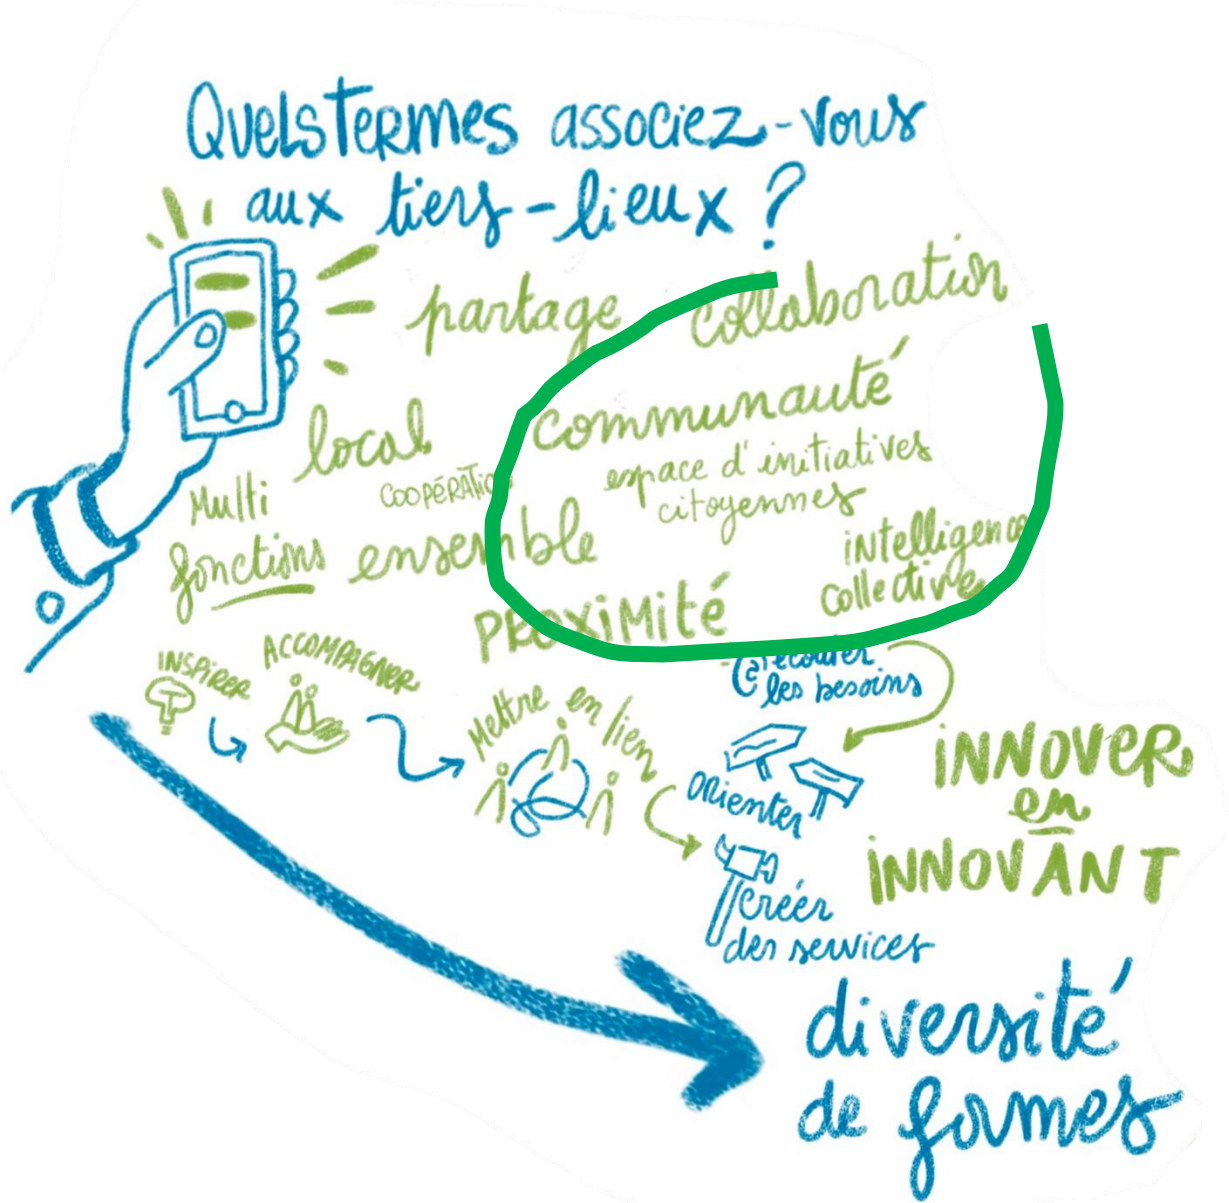 Quels termes associez-vous
aux tiers-lieux ?
partage
collaboration
local
communauté
COOPÉRATION
espace d'initiatives
citoyennes
Multi
fonctions
ensemble
intelligence
collective
PROXIMITÉ
INSPIRER
ACCOMPAGNER
Mettre en lien
écouter
les besoins
orienter
créer
des services
INNOVER
en
INNOVANT
diversité
de formes